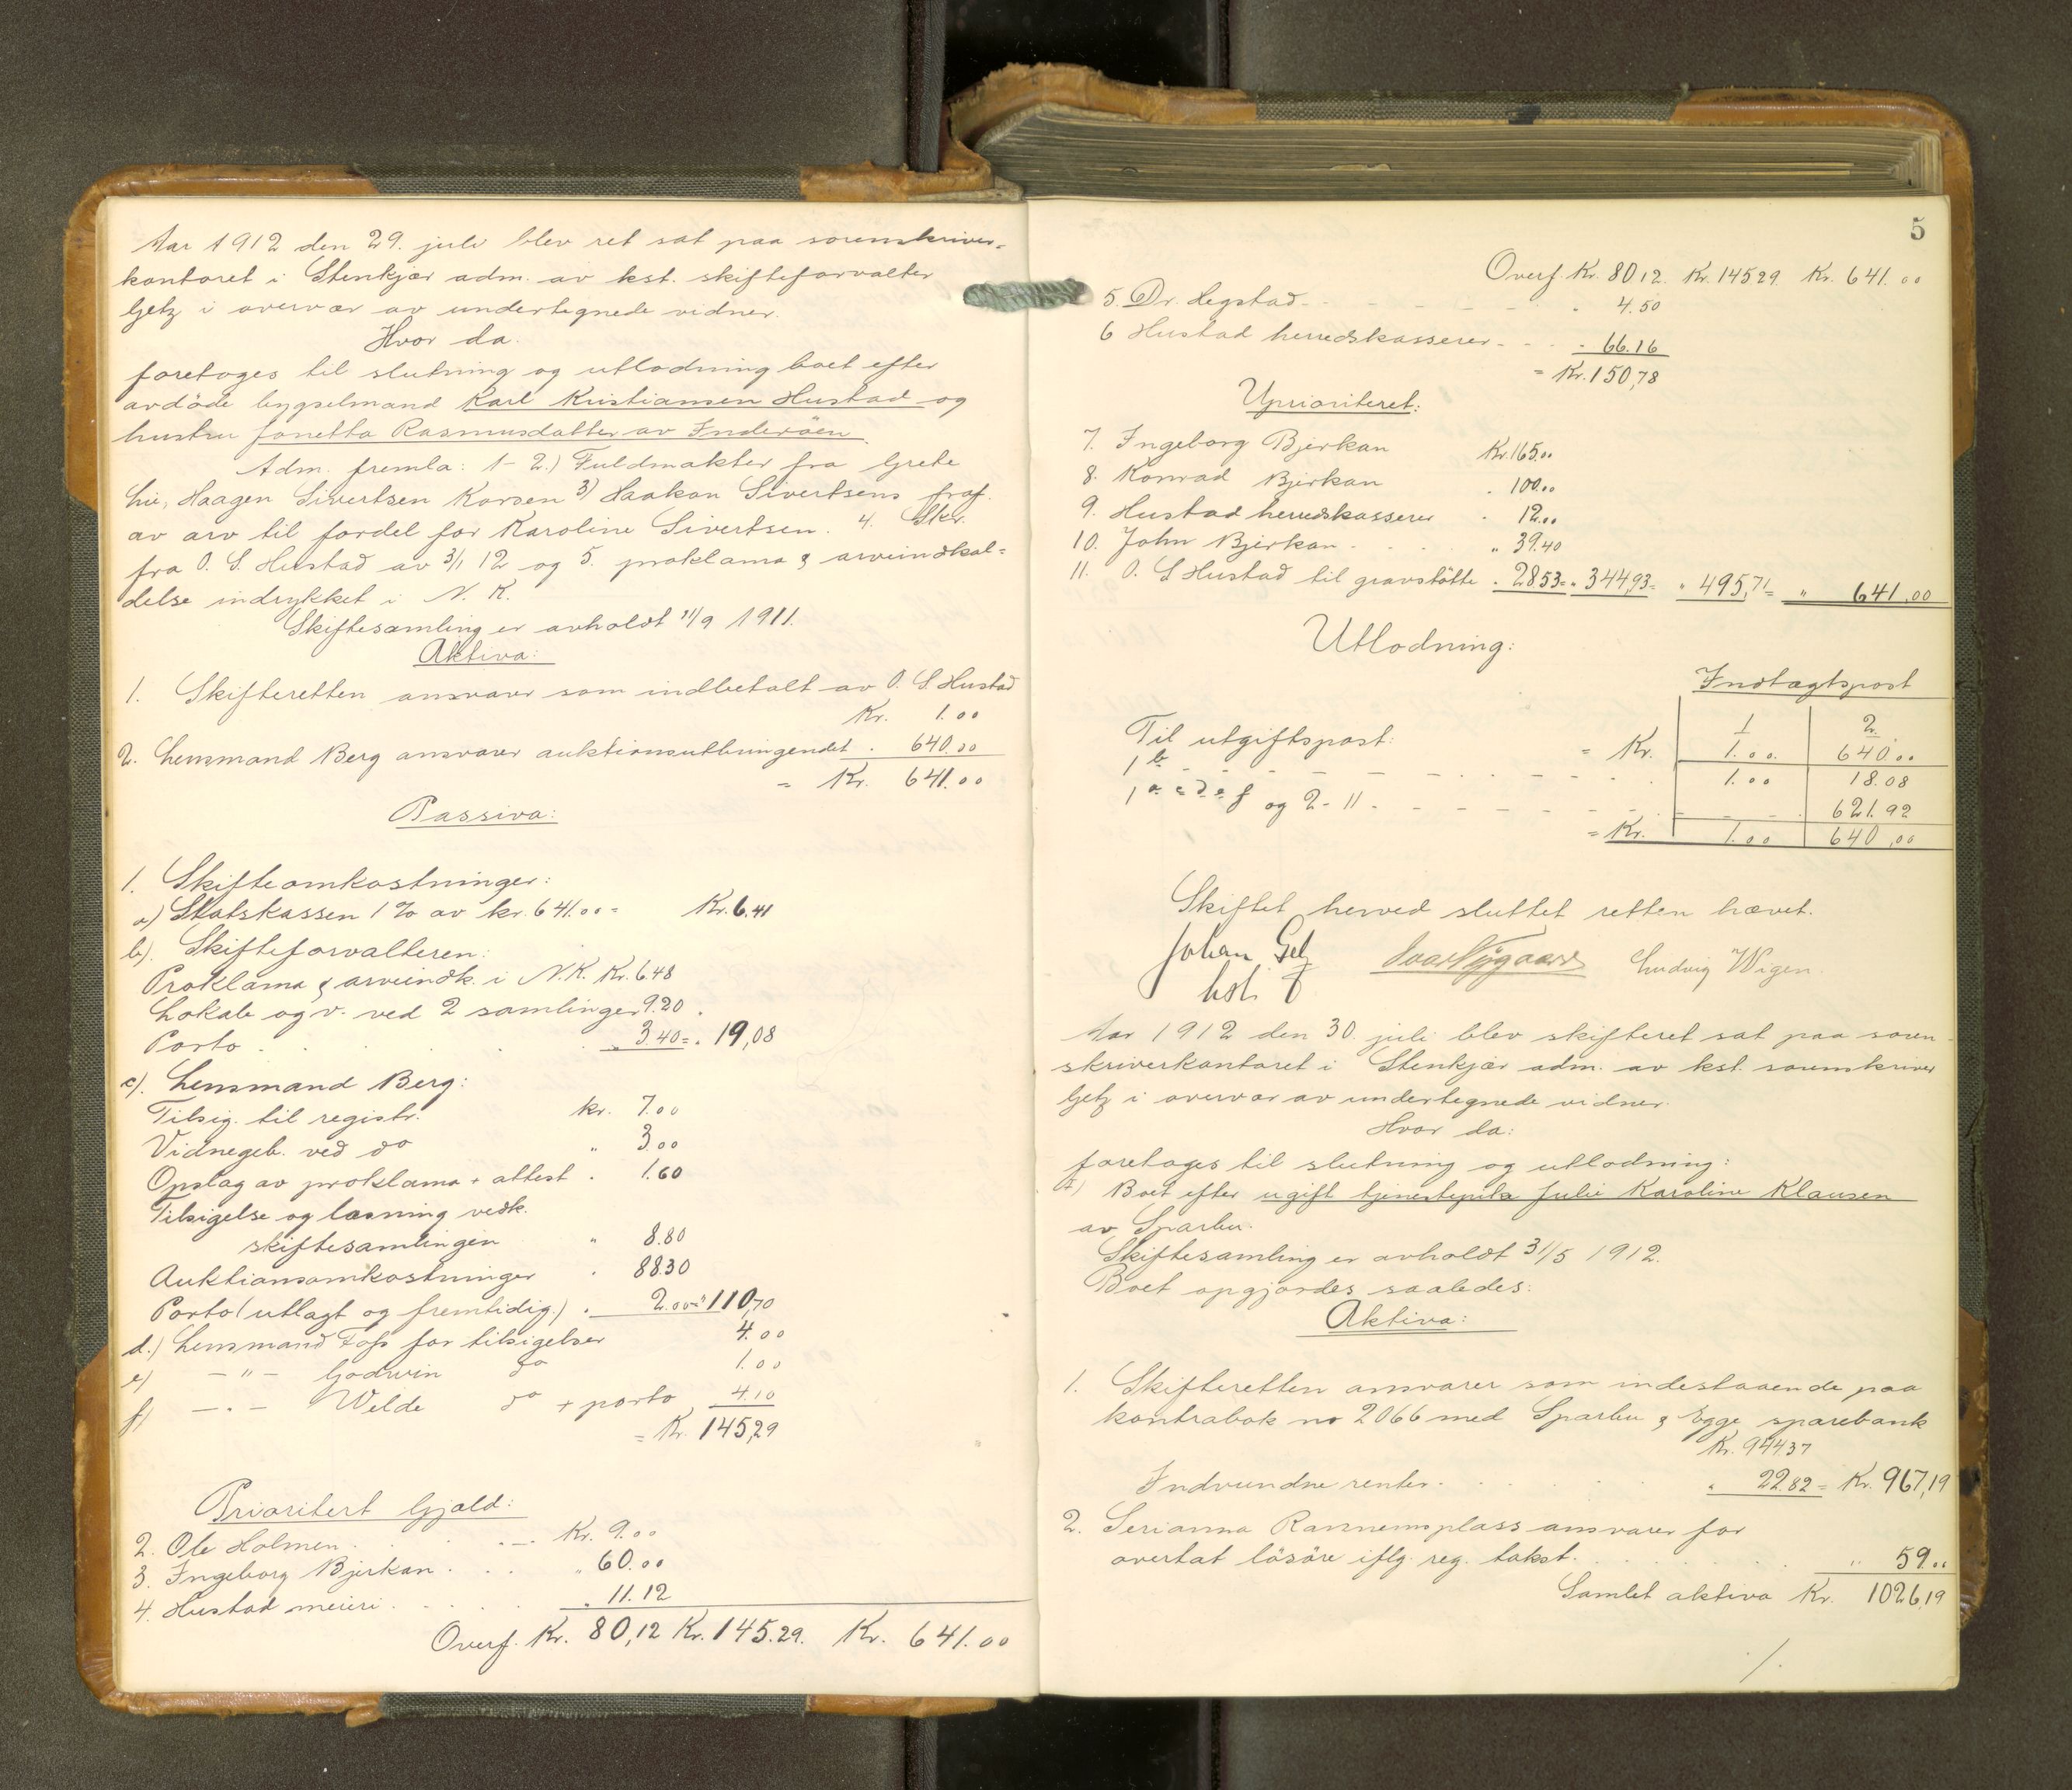 Aar 1912 den 29. juli blev ret sat paa sorenskriver-
kontoret i Stenkjær adm. av kst. skifteforvalter
Getz i overvær av undertegnede vidner.
Hvor da.
foretoges til slutning og utlodning boet efter
avdöde bygselmand Karl Kristiansen Hustad og
hustru Jonetta Rasmusdatter av Inderöen.
Adm. fremla: 1-2.) Fuldmakter fra Grete
Lie, Haagen Sivertsen Korsen 3) Haakon Sivertsens fraf.
av arv til fordel for Karoline Sivertsen. 4. Skr.
fra O. S. Hustad av 3/1 12 og 5. proklama & arveindkal=
delse indrykket i N. K.
Skiftesamling er avholdt 11/9 1911.
Aktiva:
1. Skifteretten ansvarer som indbetalt av O. S. Hustad
Kr. 1.00
2. Lensmand Berg ansvarer auktionsutbringendet . 640.00
= Kr. 641.00
Passiva:
1. Skifteomkostninger:
a) Statskassen 1 % av kr. 641.00 = Kr. 6.41
b). Skifteforvalteren:
Proklama & arveindk. i N.K. Kr. 6.48
Lokale og v. ved 2 samlinger 9.20
Porto . . . . . 3.40 = . 19,08
c). Lensmand Berg:
Tilsig. til registr. kr. 7.00
Vidnegeb. ved do " 3.00
Opslag av proklama + attest . 1.60
Tilsigelse og læsning vedk.
skiftesamlingen " 8.80
Auktionsomkostninger . 88.30
Porto (utlagt og fremtidig.) . 2.00 = " 110,70
d.) Lensmand Foss for tilsigelser 4.00
e) - " - Godwin do 1.00
f) - " - Welde do + porto 4.10
= Kr. 145,29
Prioritert Gjæld:
2. Ole Holmen . . . . - Kr. 9.00
3. Ingeborg Bjerkan . . . " 60.00
4. Hustad meieri . . . . . 11.12
Overf. Kr. 80,12 Kr. 145.29. Kr. 641.00
5
Overf. Kr. 80 12. Kr. 145 29. Kr. 641.00
5. Dr. Hegstad - - - - - . 4.50
6 Hustad herredskasserer - - . . 66.16
= Kr. 150,78
Uprioriteret:
7. Ingeborg Bjerkan Kr. 165.00
8. Konrad Bjerkan . 100.00
9. Hustad herredskasserer . 12.00
10. John Bjerkan . . . . " 39.40
11. O. S Hustad til gravstötte . 28 53 = " 344,93 = " 495,71 = " 641,00
Utlodning:
Indtægtspost
Til utgiftspost: 1 2.
= Kr. 1.00. 640.00
1 b - - - - - - - 1.00 18.08
1 a c d e f og 2-11 . - - - - - 621.92
= Kr. 1.00 640,00
Skiftet herved sluttet retten hævet.
Johan Getz Ivar Nygaard Ludvig Wigen.
kst.
Aar 1912 den 30. juli blev skifteret sat paa soren-
skriverkontoret i Stenkjær adm. av kst. sorenskriver
Getz i overvær av undertegnede vidner.
Hvor da:
foretoges til slutning og utlodning:
Boet efter ugift tjenestepike Julie Karoline Klausen
av Sparbu.
Skiftesamling er avholdt 31/5 1912.
Boet opgjordes saaledes:
Aktiva:
1. Skifteretten ansvarer som indestaaende paa
kontrabok no 2066 med Sparbu & Egge sparebank
Kr. 944 37
Indvundne renter . . . . . . 22.82 = Kr. 967,19
2. Serianna Rannemsplass ansvarer for
overtat lösöre iflg. reg. takst. . . . . " 59.00
Samlet aktiva Kr. 1026,19
/.